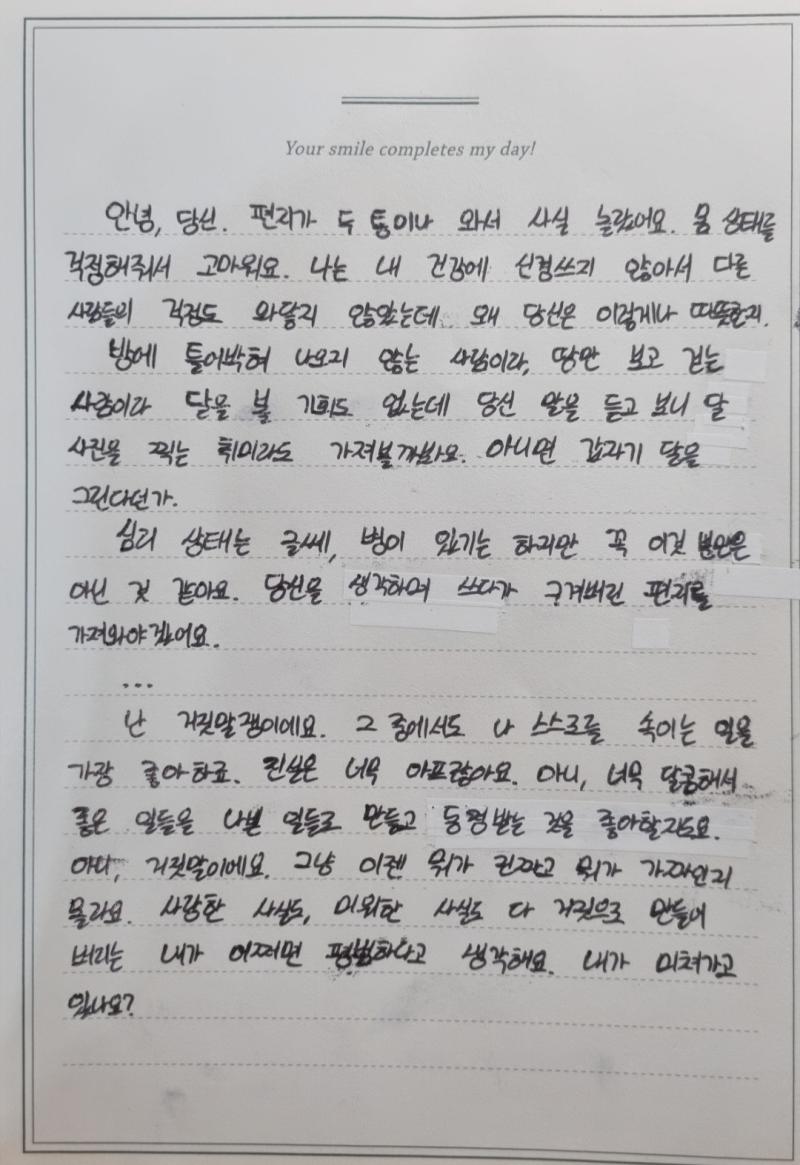 Your smile completes my day!
안녕, 당신. 편지가 두 통이나 와서 사실 놀랐어요. 몸 상태를
걱정해줘서 고마워요. 나는 내 건강에 신경쓰지 않아서 다른
사람들의 걱정도 와닿지 않았는데. 왜 당신은 이렇게나 따뜻한지.
방에 틀어박혀 나오지 않는 사람이라, 땅만 보고 걷는
사람이라 달을 볼 기회도 없는데 당신 말을 듣고 보니 달
사진을 찍는 취미라도 가져볼까봐요. 아니면 갑자기 달을
그린다던가.
심리 상태는 글쎄, 병이 있기는 하지만 꼭 이것 뿐만은
아닌 것 같아요. 당신을 생각하며 쓰다가 구겨버린 편지를
가져와야겠어요.
...
난 거짓말쟁이에요. 그 중에서도 나 스스로를 속이는 일을
가장 좋아하죠. 진실은 너무 아프잖아요. 아니, 너무 달콤해서
좋은 일들을 나쁜 일들로 만들고 동정받는 것을 좋아할지도요.
아다, 거짓말이에요. 그냥 이젠 뭐가 진짜고 뭐가 가짜인지
몰라요. 사랑한 사실도, 미워한 사실도 다 거짓으로 만들어
버리는 내가 어쩌면 평범하다고 생각해요. 내가 미쳐가고
있나요?